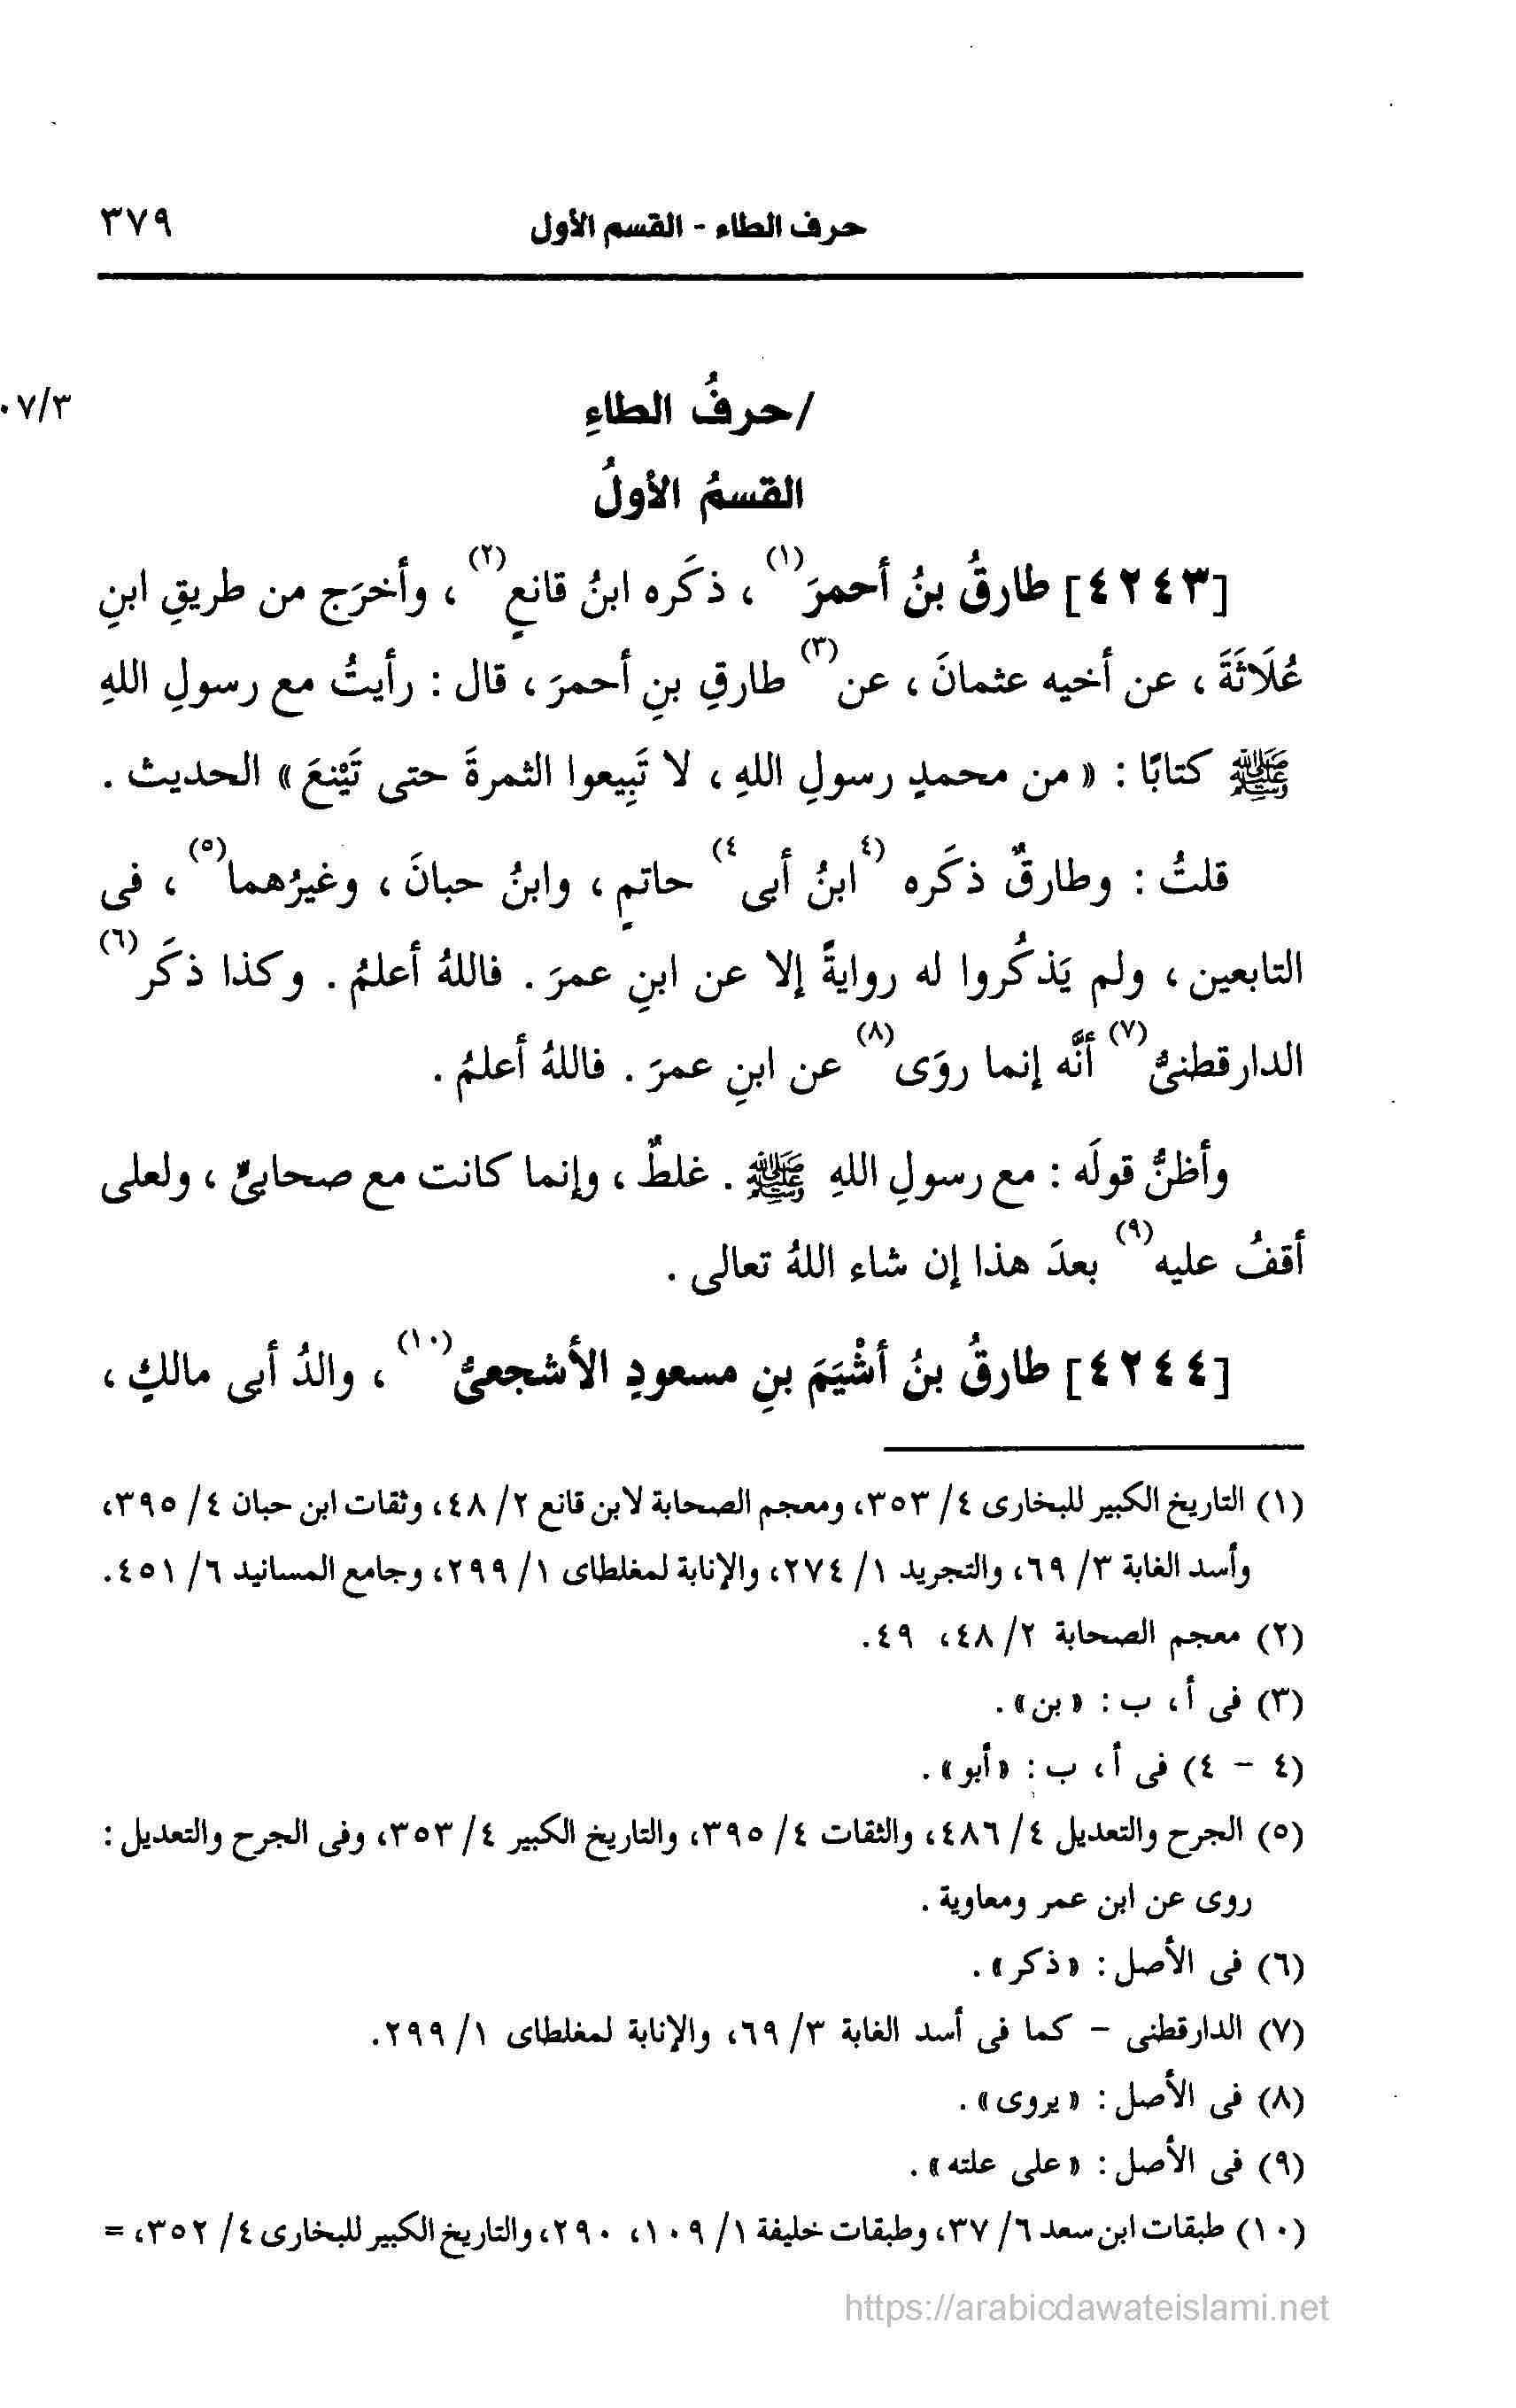 حرف الطاء - القسم الأول ٣٧٩
/حرفُ الطاءِ ٠٧/٣
القسمُ الأولُ
[٤٢٤٣] طارقُ بنُ أحمرَ(١)، ذكَره ابنُ قانعٍ(٢)، وأخرَج من طريقِ ابنِ
عُلَاثَةَ، عن أخيه عثمانَ، عن(٣) طارقِ بنِ أحمرَ، قال: رأيتُ مع رسولِ اللهِ
ﷺ كتابًا: «من محمدٍ رسولِ اللهِ، لا تَبِيعوا الثمرةَ حتى تَيْنعَ» الحديث.
قلتُ: وطارقٌ ذكَره (٤ابنُ أبى٤) حاتمٍ، وابنُ حبانَ، وغيرُهما(٥)، فى
التابعين، ولم يَذكُروا له روايةً إلا عن ابنِ عمرَ. فاللهُ أعلمُ. وكذا ذكَر(٦)
الدارقطنىُّ(٧) أنَّه إنما روَى(٨) عن ابنِ عمرَ. فاللهُ أعلمُ.
وأظنُّ قولَه: مع رسولِ اللهِ ﷺ. غلطٌ، وإنما كانت مع صحابىٍّ، ولعلى
أقفُ عليه(٩) بعدَ هذا إن شاء اللهُ تعالى.
[٤٢٤٤] طارقُ بنُ أشْيَمَ بنِ مسعودٍ الأشجعىُّ(١٠)، والدُ أبى مالكٍ،
(١) التاريخ الكبير للبخارى ٤/ ٣٥٣، ومعجم الصحابة لابن قانع ٢/ ٤٨، وثقات ابن حبان ٤/ ٣٩٥،
وأسد الغابة ٣/ ٦٩، والتجريد ١/ ٢٧٤، والإنابة لمغلطاى ١/ ٢٩٩، وجامع المسانيد ٦/ ٤٥١.
(٢) معجم الصحابة ٢/ ٤٨، ٤٩.
(٣) فى أ، ب: «بن».
(٤ - ٤) فى أ، ب: «أبو».
(٥) الجرح والتعديل ٤/ ٤٨٦، والثقات ٤/ ٣٩٥، والتاريخ الكبير ٤/ ٣٥٣، وفى الجرح والتعديل:
روى عن ابن عمر ومعاوية.
(٦) فى الأصل: «ذكر».
(٧) الدارقطنى - كما فى أسد الغابة ٣/ ٦٩، والإنابة لمغلطاى ١/ ٢٩٩.
(٨) فى الأصل: «يروى».
(٩) فى الأصل: «على علته».
(١٠) طبقات ابن سعد ٦/ ٣٧، وطبقات خليفة ١/ ١٠٩، ٢٩٠، والتاريخ الكبير للبخارى ٤/ ٣٥٢، =
https://arabicdawateislami.net